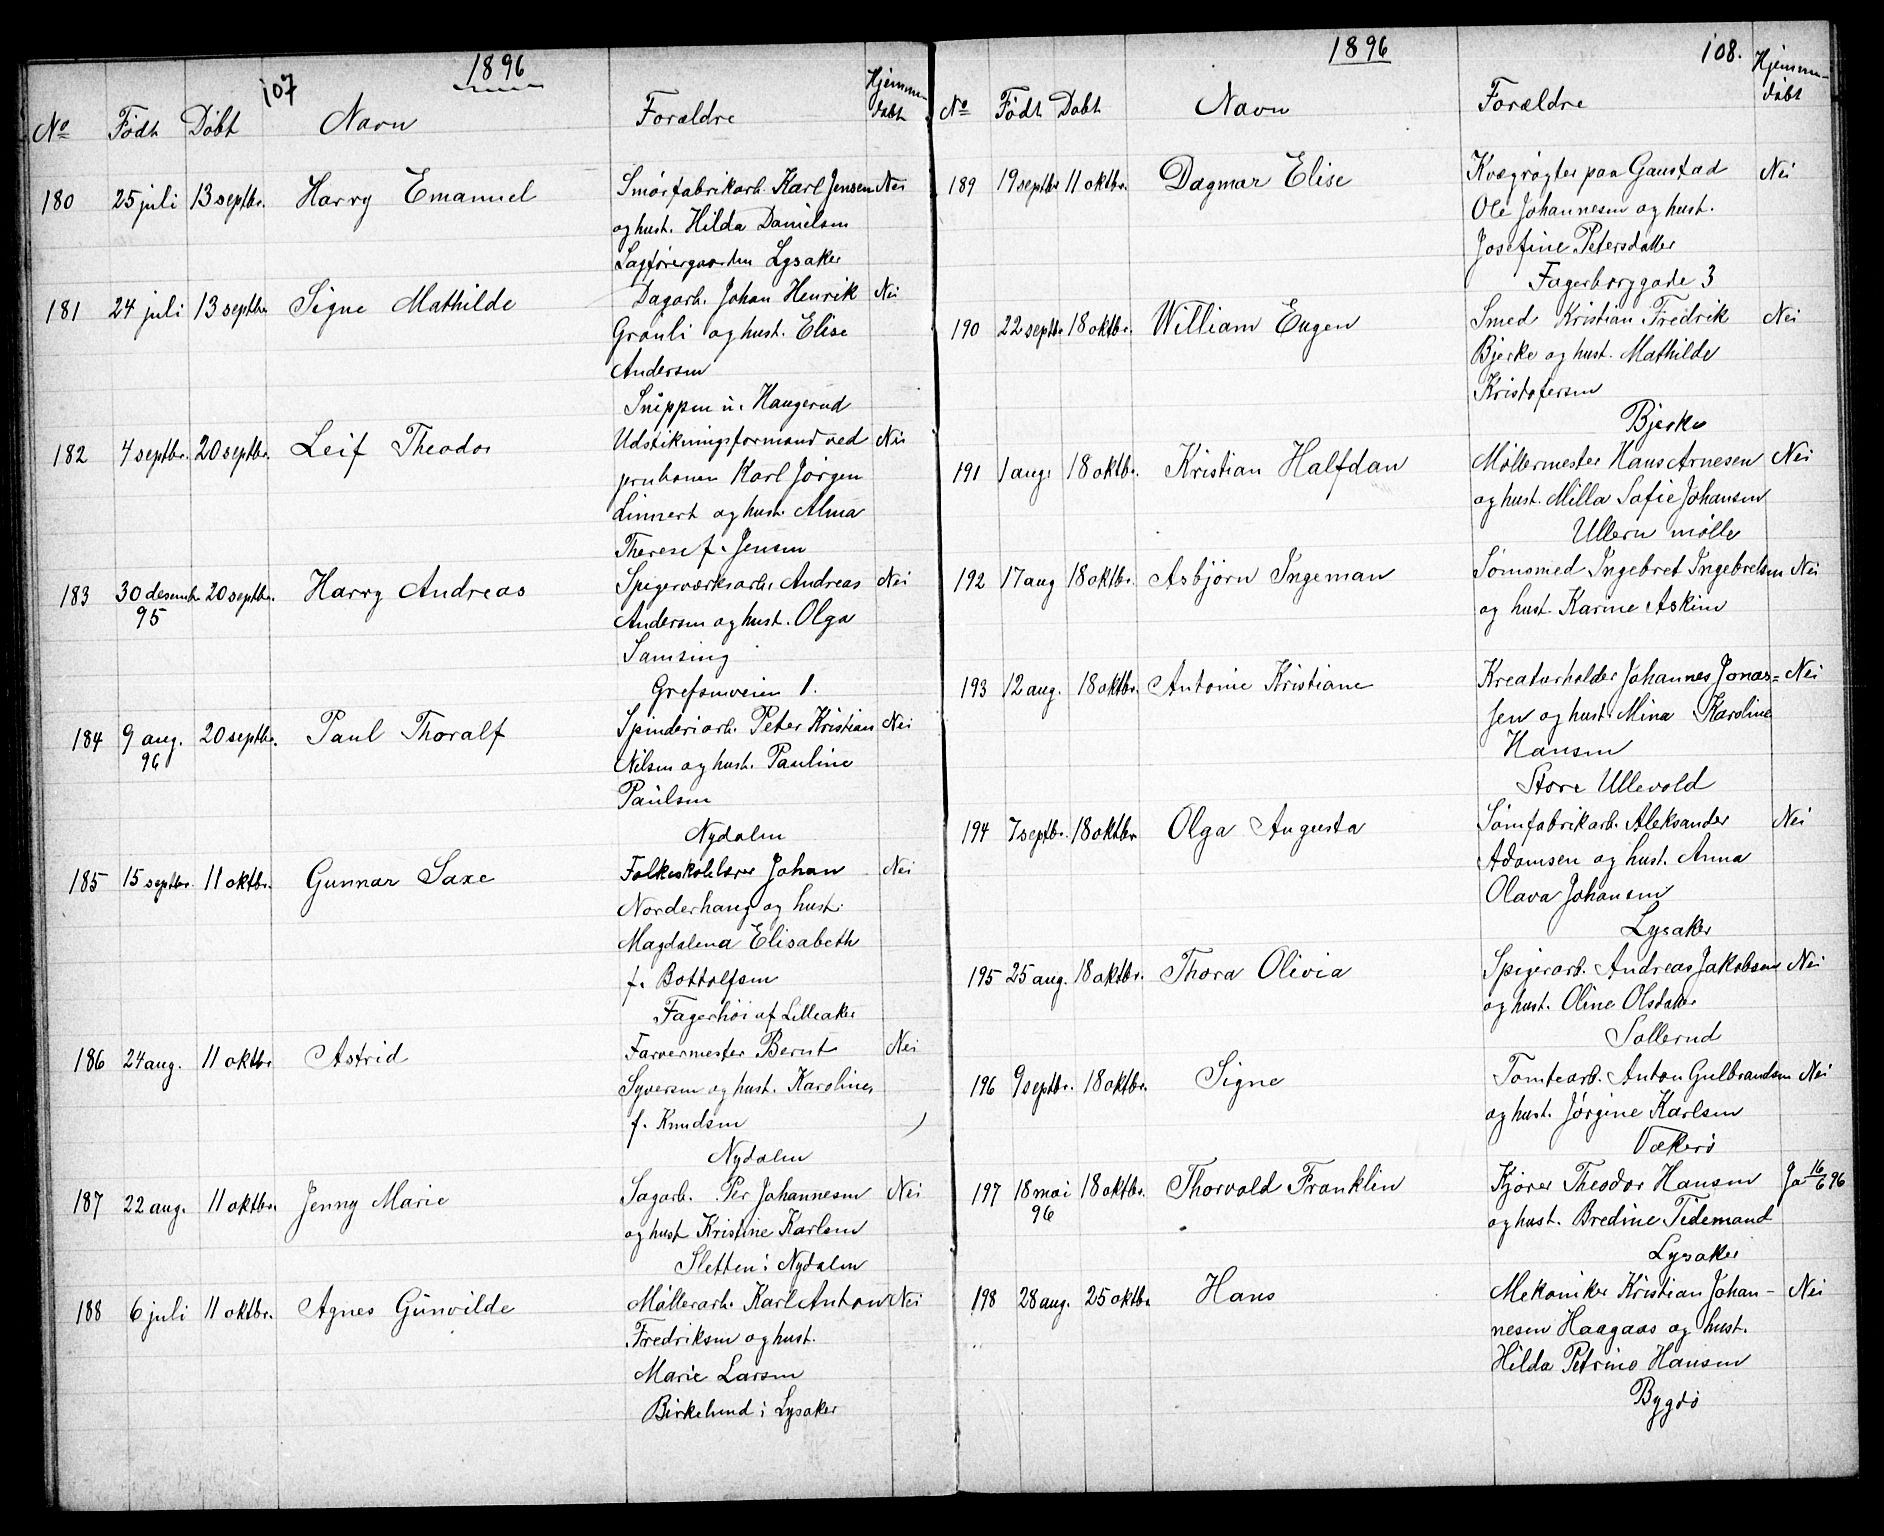 1896
107
No Født Døbt Navn Forældre Hjemme-
døbt
180 25 juli 13 septbr. Harry Emanuel Smørfabrikarb. Karl Jensen Nei
og hust. Hilda Danielsen
Sagførergaarden Lysaker
181 24 juli 13 septbr Signe Mathilde Dagarb. Johan Henrik Nei
Granli og hust. Elise
Andersen
Snippen u. Haugerud
182 4 septbr. 20 septbr. Leif Theodor Udstikningsformand ved Nei
jernbanen Karl Jørgen
Linnert og hust. Alma
Therese f. Jensen
183 30 desembr 20 septbr. Harry Andreas Spigerværksarb. Andreas Nei
95 Andersen og hust. Olga
Samsing
Grefsenveien 1.
184 9 aug. 20 septbr. Paul Thoralf Spinderiarb. Peter Kristian Nei
96 Nilsen og hust. Pauline
Paulsen
Nydalen
185 15 septbr. 11 oktbr. Gunnar Saxe Folkeskolelærer Johan Nei
Norderhaug og hust.
Magdalena Elisabeth
f. Bottolfsen
Fagerhøi af Lilleaker
186 24 aug. 11 oktbr Astrid Farvermester Bernt Nei
Syversen og hust. Karoline
f. Knudsen
Nydalen
187 22 aug. 11 oktbr. Jenny Marie Sagarb. Per Johannesen Nei
og hust Kristine Karlsen
Sletten i Nydalen
188 6 juli 11 oktbr. Agnes Gunvilde Møllerarb. Karl Anton Nei
Fredriksen og hust.
Marie Larsen
Birkelund i Lysaker
1896 108.
No Født Døbt Navn Forældre Hjemme-
døbt
189 19 septbr 11 oktbr. Dagmar Elise Kvægrøgter paa Gaustad Nei
Ole Johannesen og hust.
Josefine Petersdatter
Fagerborggade 3
190 22 septbr 18 oktbr. William Eugen Smed Kristian Fredrik Nei
Bjerke og hust. Mathilde
Kristofersen
Bjerke
191 1 aug. 18 oktbr. Kristian Halfdan Møllermester Hans Arnesen Nei
og hust. Milla Sofie Johansen
Ullern mølle
192 17 aug 18 oktbr. Asbjørn Ingeman Sømsmed Ingebret Ingebretsen Nei
og hust. Karine Askim
193 12 aug. 18 oktbr. Antonie Kristiane Kreaturholder Johannes Jonas= Nei
sen og hust. Mina Karoline
Hansen
Store Ullevold
194 7 septbr. 18 oktbr Olga Augusta Sømfabrikarb. Aleksander Nei
Adamsen og hust. Anna
Olava Johansen
Lysaker
195 25 aug. 18 oktbr. Thora Olivia Spigerarb. Andreas Jakobsen Nei
og hust. Oline Olsdatter
Sollerud
196 9 septbr. 18 oktbr. Signe Tomtearb. Anton Gulbrandsen Nei
og hust. Jørgine Karlsen
Vækerø
197 18 mai 18 oktbr. Thorvald Franklin Kjører Theodor Hansen Ja 16/6 96
96 og hust. Bredine Tidemand
Lysaker
198 28 aug. 25 oktbr Hans Mekaniker Kristian Johan- Nei
nesen Haagaas og hust.
Hilda Petrine Hansen
Bygdø